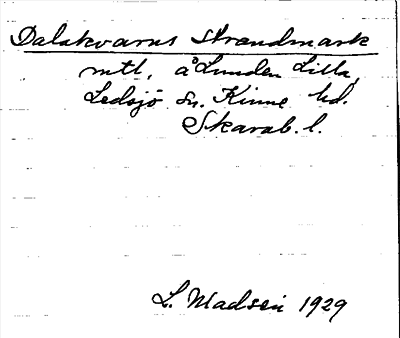 Dalakvarns Strandmark
mtl, å Lunden Lilla,
Ledsjö sn. Kinne hd.
Skarab. l.
L. Madsen 1929